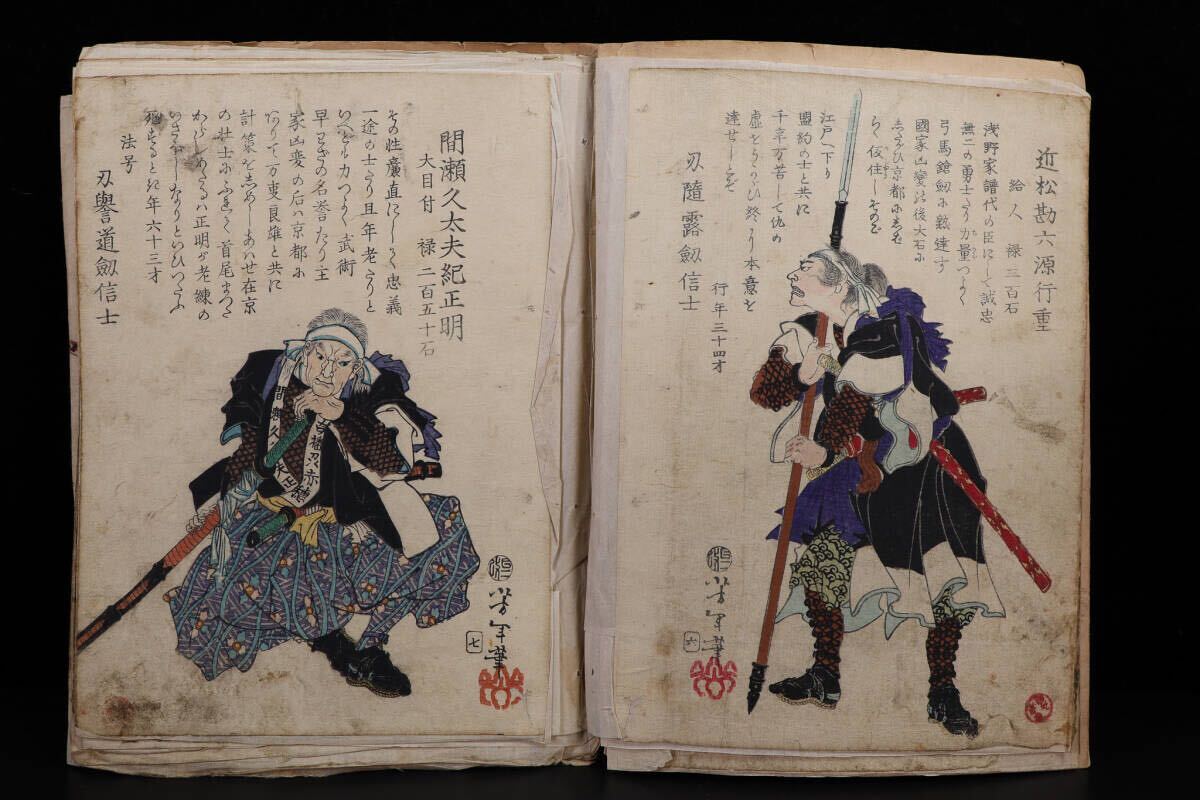 近松勘六源行重
給人 禄三百石
浅野家譜代の臣にして誠忠
無二の勇士たり力量つよく
弓馬鎗劔に熟達す
國家凶変の後大石に
したがひ京都に
らく仮住し
江戸へ下り
盟約の士と共に
千辛万苦して仇の
虚をうかゞひ終に本意を
達せしとぞ
行年三十四才
刃隨露劔信士
芳年筆
六
間瀬久太夫紀正明
大目付 禄二百五十石
その性廉直にしてよく忠義
一途の士たり且年老たりと
いへども力つよく武術
早わざの名誉たり主
家凶変の后は京都に
ありて万事良雄と共に
計策をしめしあはせ在京
の壮士にふれて首尾まつた
からしめたるハ正明が老練の
いさをしなりといひつたふ
行年六十三才
法号
刃譽道劔信士
間瀬久太夫
芳年筆
七